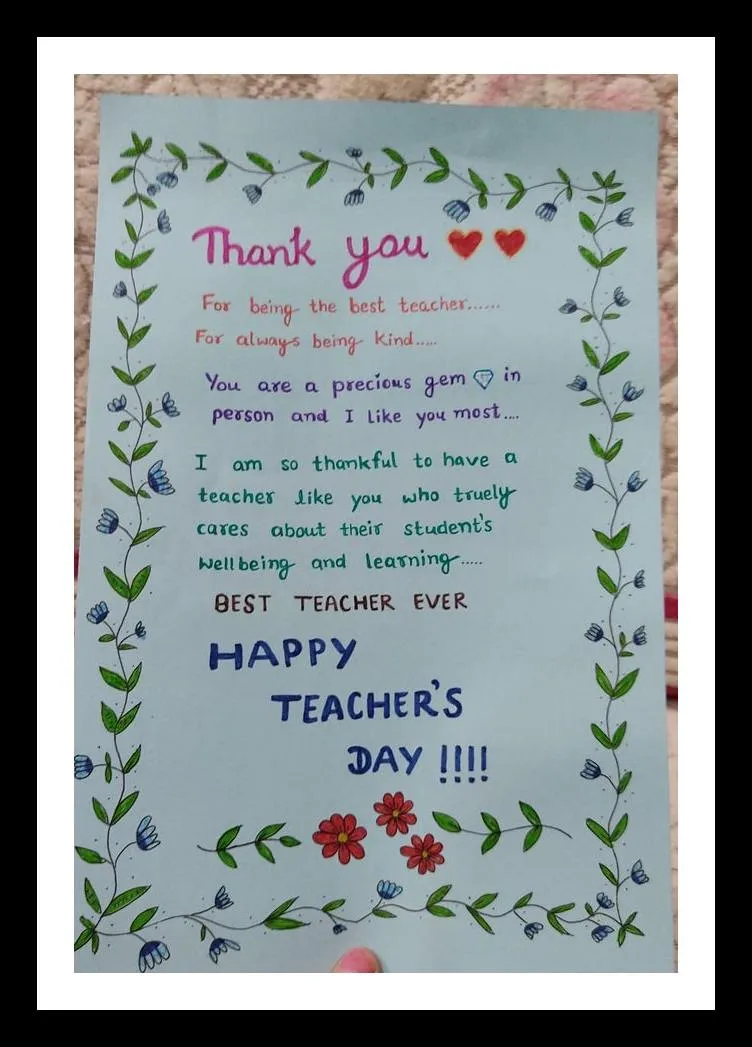 Thank you ❤❤
For being the best teacher......
For always being kind.....
You are a precious gem 💎 in
person and I like you most....
I am so thankful to have a
teacher like you who truely
cares about their student's
wellbeing and learning.....
BEST TEACHER EVER
HAPPY
TEACHER'S
DAY !!!!